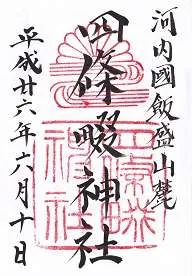 河内國飯盛山麓
四條畷神社
平成廿六年六月十日